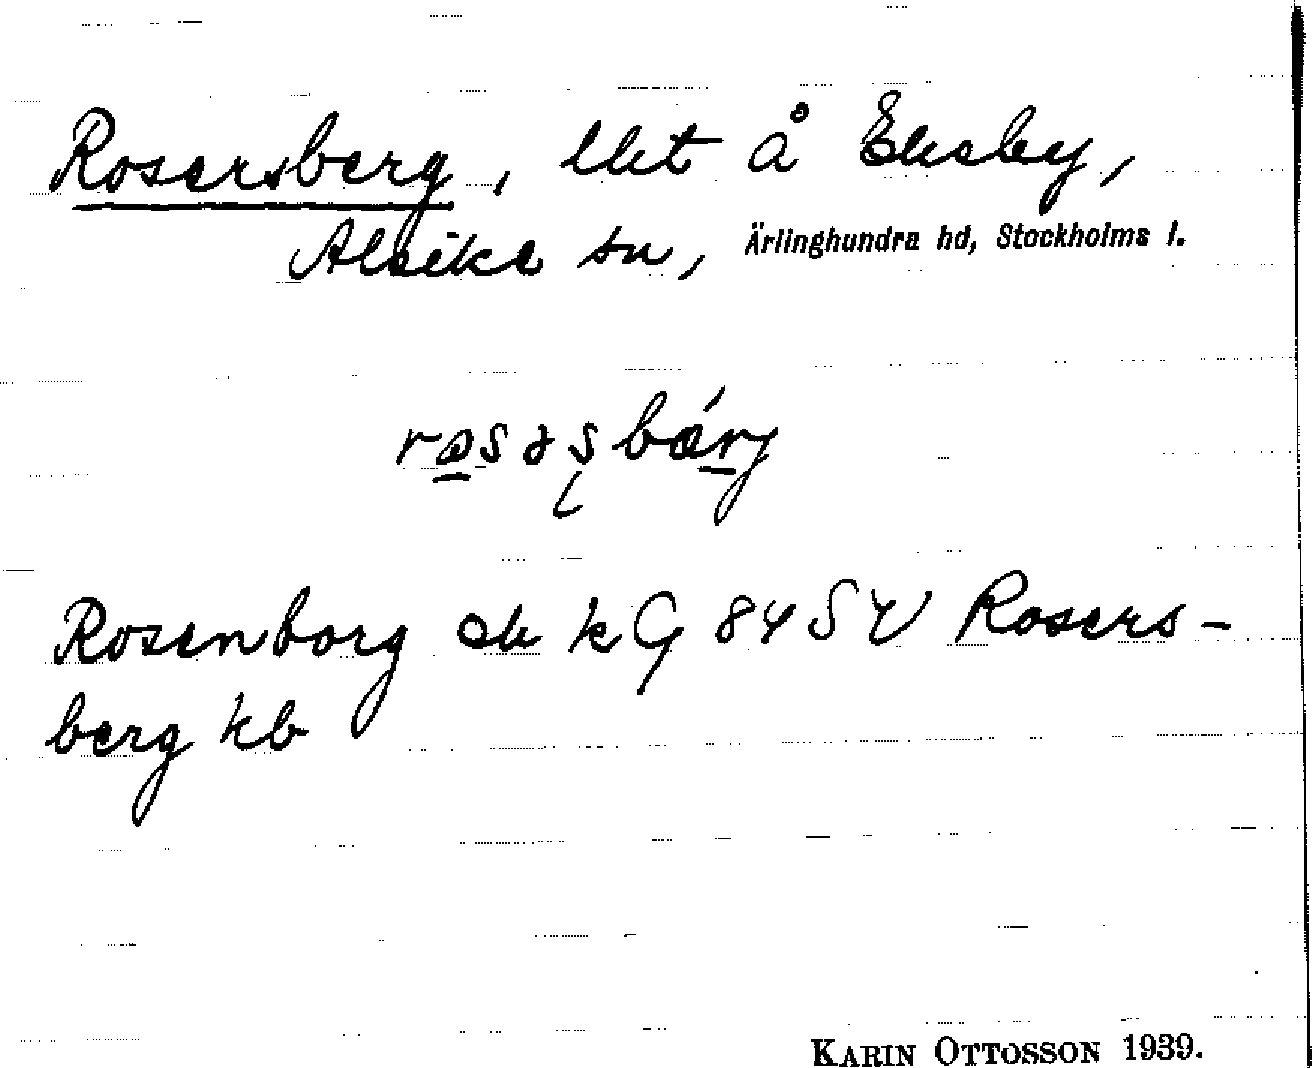 Rosersberg, lht å Ekeby,
Alsike sn, Ärlinghundra hd, Stockholms l.
Rosenborg ek kG 84 SV Rosers-
berg kb
KARIN OTTOSSON 1939.